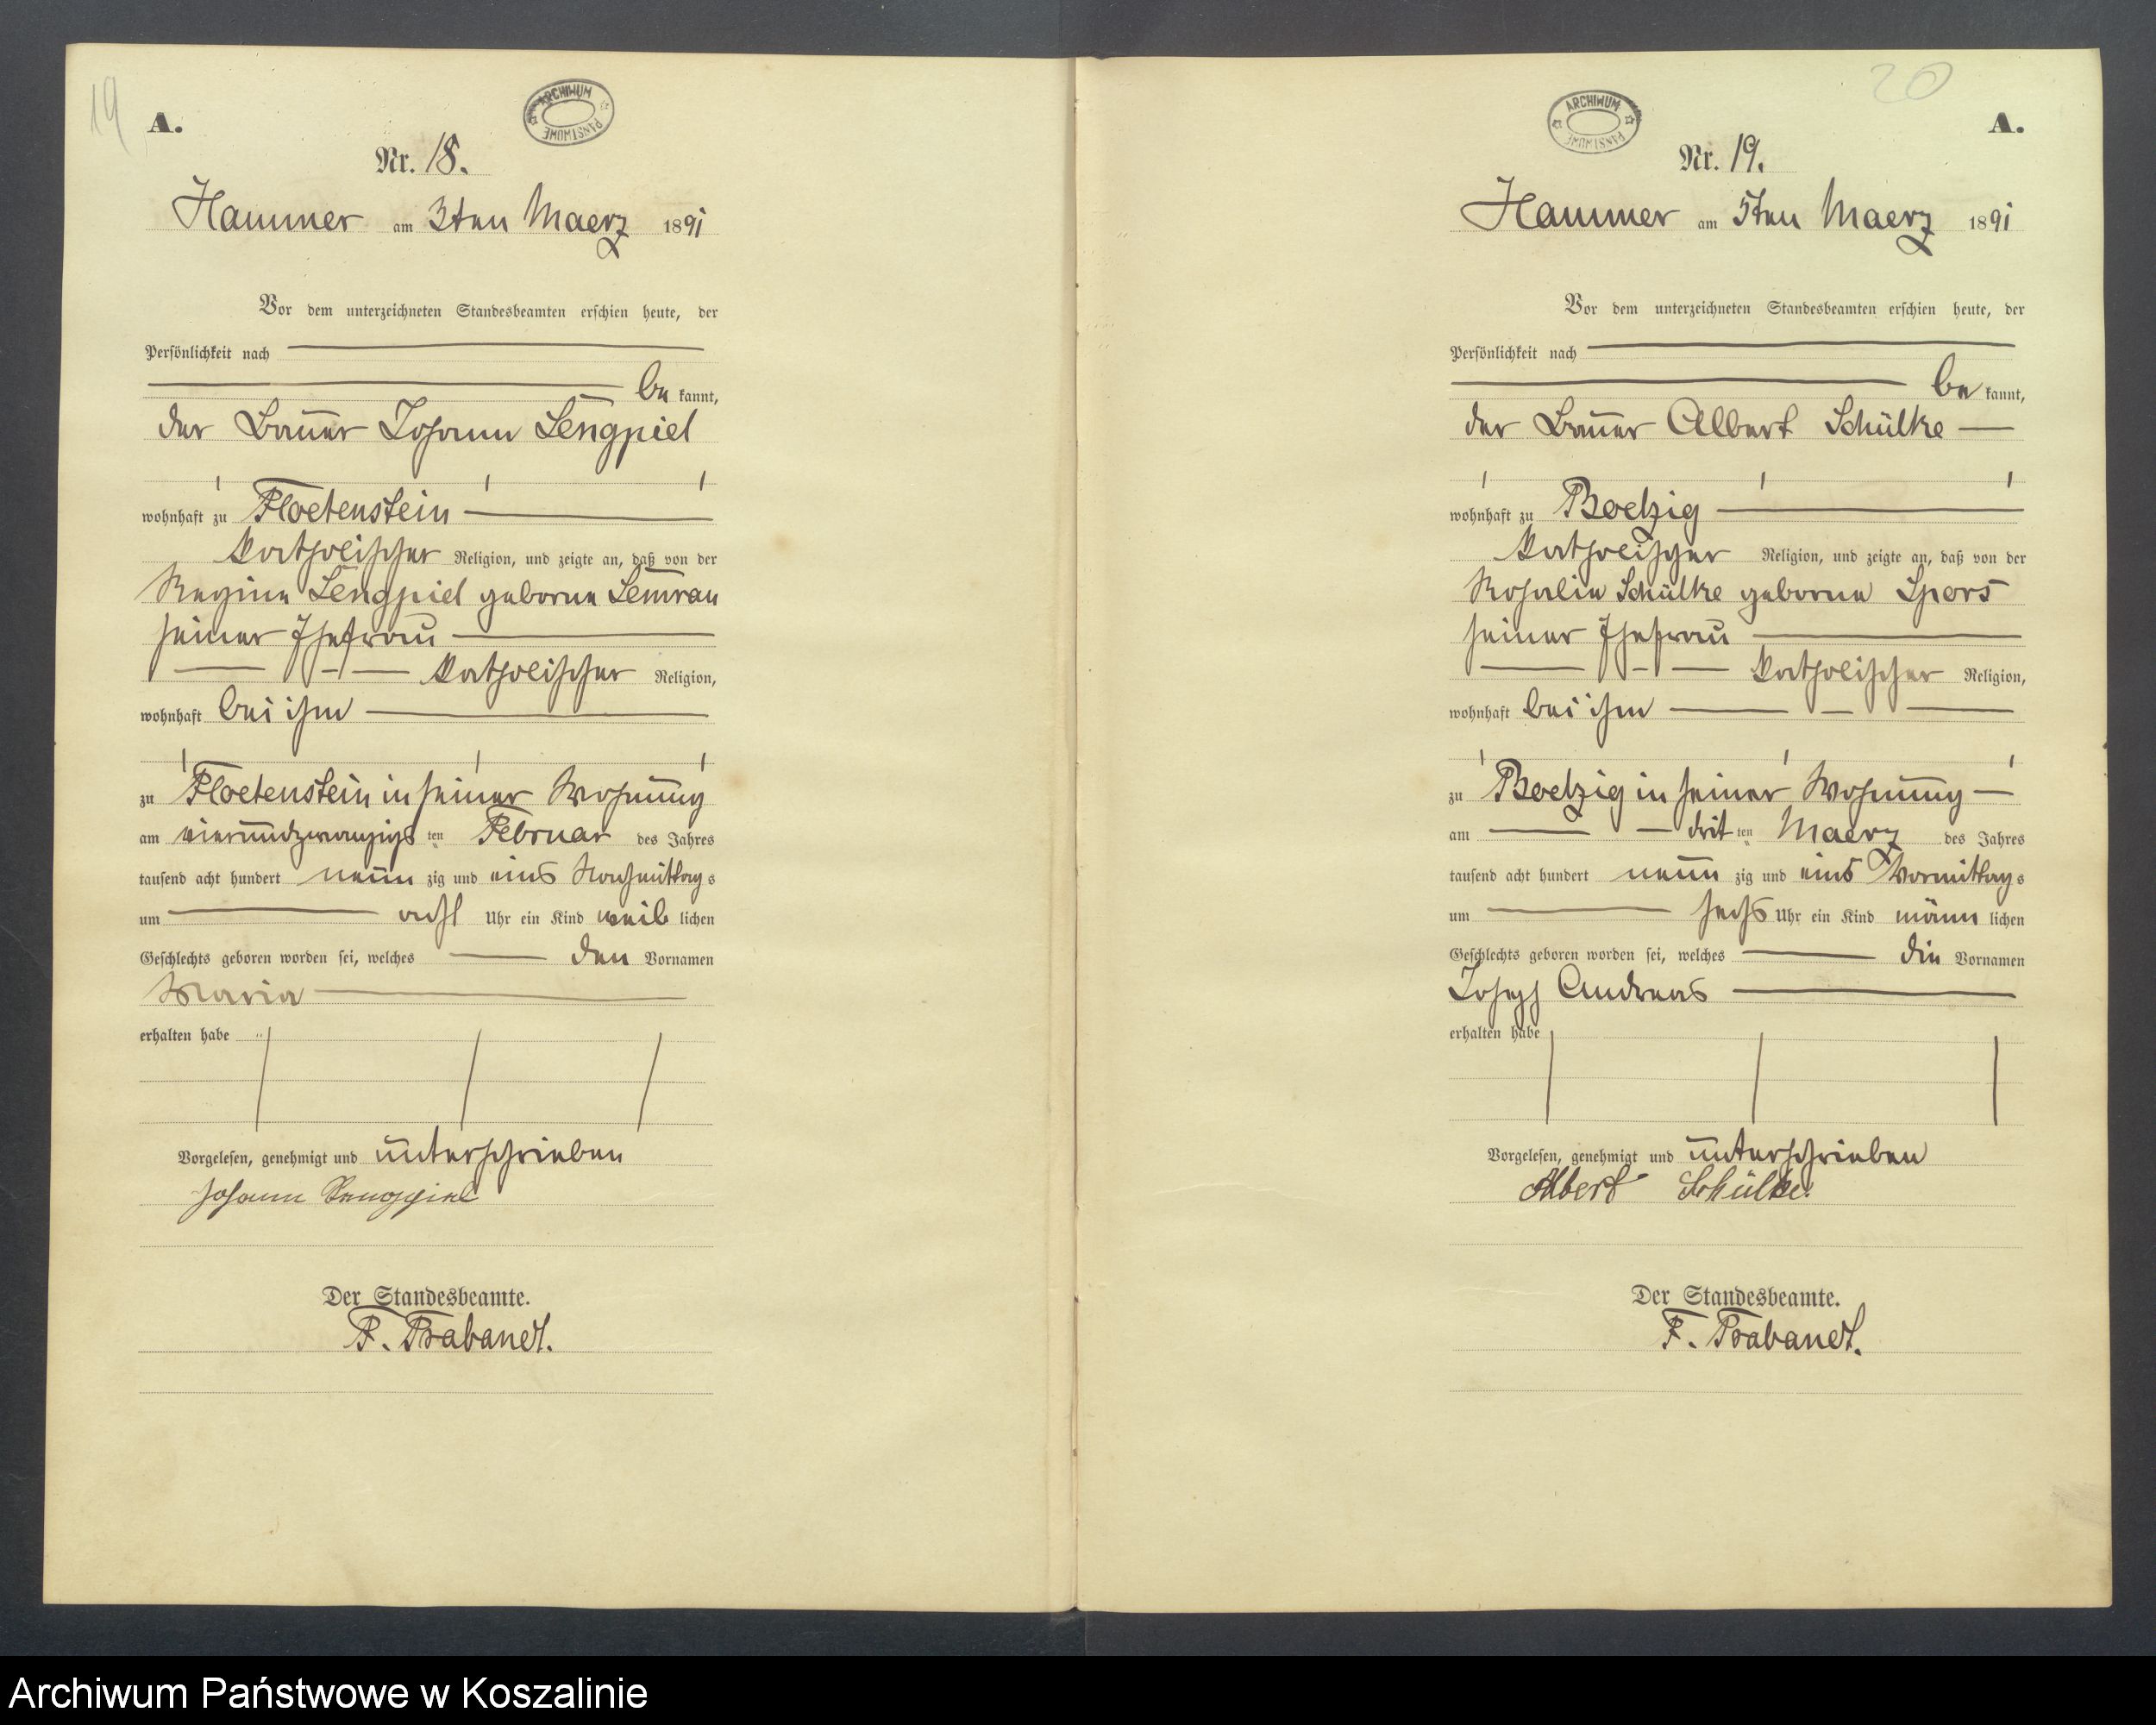 19
A.
ARCHIWUM PAŃSTWOWE
Nr. 18.
Hammer am 3ten Maerz 1891
Vor dem unterzeichneten Standesbeamten erschien heute, der
Persönlichkeit nach
be kannt,
der Bauer Johann Lengpiel
wohnhaft zu Floetenstein
katholischer Religion, und zeigte an, daß von der
Regine Lengpiel geborne Lemrau
seiner Ehefrau
katholischer Religion,
wohnhaft bei ihm
zu Floetenstein in seiner Wohnung
am vierundzwanzigs ten Februar des Jahres
tausend acht hundert neun zig und eins Nachmittags
um acht Uhr ein Kind weib lichen
Geschlechts geboren worden sei, welches den Vornamen
Maria
erhalten habe
Vorgelesen, genehmigt und unterschrieben
Johann Lengpiel
Der Standesbeamte.
F. Trabandt.
20
A.
ARCHIWUM PAŃSTWOWE
Nr. 19.
Hammer am 5ten Maerz 1891
Vor dem unterzeichneten Standesbeamten erschien heute, der
Persönlichkeit nach
be kannt,
der Bauer Albert Schülke
wohnhaft zu Boetzig
katholischer Religion, und zeigte an, daß von der
Rosalie Schülke geborne Spors
seiner Ehefrau
katholischer Religion,
wohnhaft bei ihm
zu Boetzig in seiner Wohnung
am drit ten Maerz des Jahres
tausend acht hundert neun zig und eins Vormittags
um sechs Uhr ein Kind männ lichen
Geschlechts geboren worden sei, welches die Vornamen
Joseph Andreas
erhalten habe
Vorgelesen, genehmigt und unterschrieben
Albert Schülke
Der Standesbeamte.
F. Trabandt.
Archiwum Państwowe w Koszalinie